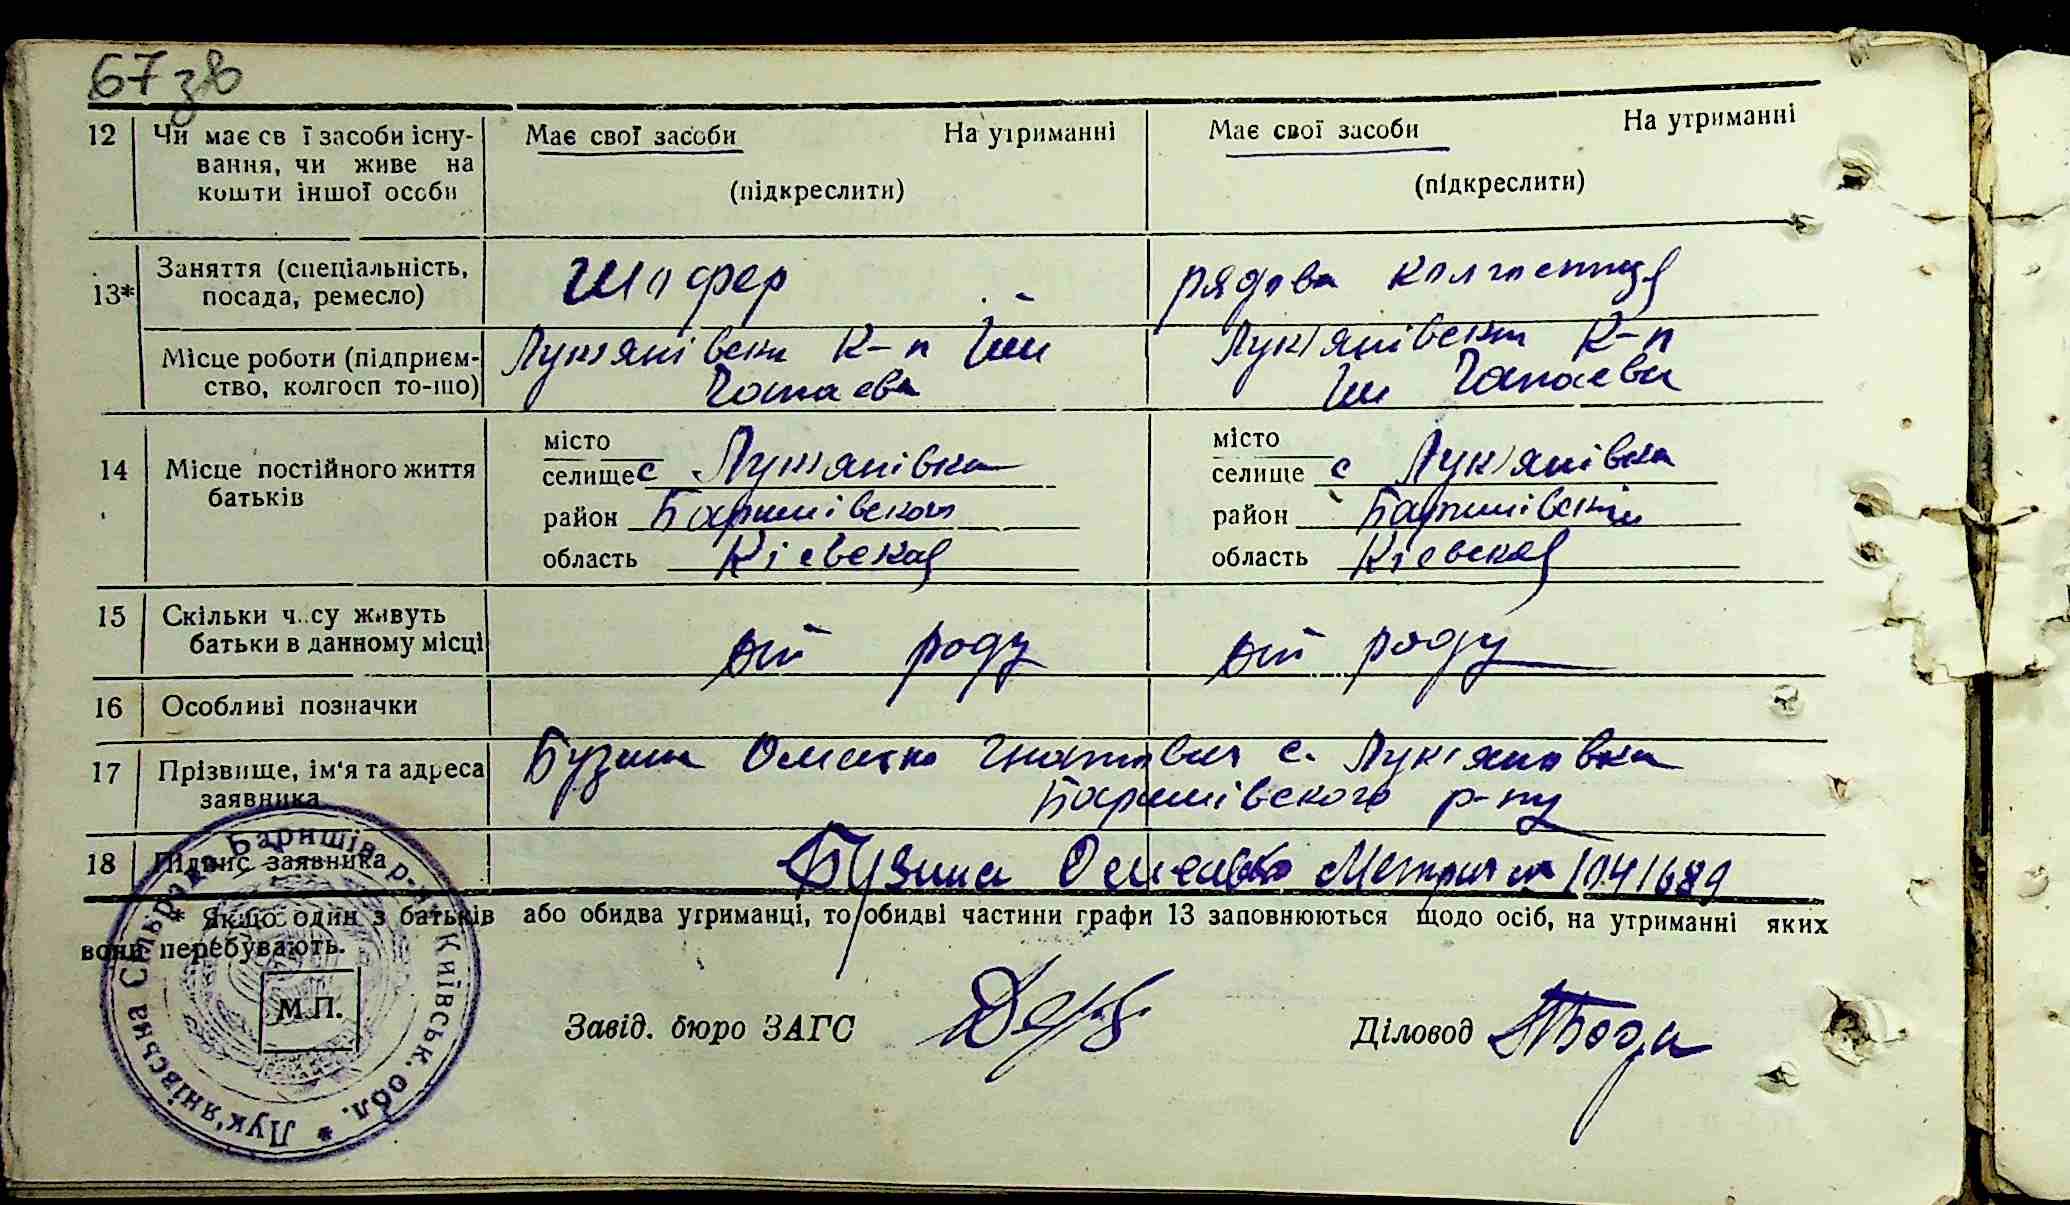 67 зв
12 Чи має св ї засоби існу- Має свої засоби На утриманні Має свої засоби На утриманні
вання, чи живе на (підкреслити) (підкреслити)
кошти іншої особи
13* Заняття (спеціальність, Шофер рядова колгоспниця
посада, ремесло)
Місце роботи (підприєм- Лукянівски к-п Ім Лук'янівски к-п
ство, колгосп то-що) Чапаєва Ім Чапаєва
14 Місце постійного життя місто місто
батьків селище с Лукянівка селище с Лук'янівка
район Баришівского район Баришівский
область Кієвская область Кієвская
15 Скільки ч..су живуть від роду від роду
батьки в данному місці
16 Особливі позначки
17 Прізвище, ім'я та адреса Бузина Гнатович с. Лук'яновка
заявника Баришівского р-ну
18 Підпис заявника Бузина 1041689
* Якщо один з батьків або обидва утриманці, то обидві частини графи 13 заповнюються щодо осіб, на утриманні яких
вони перебувають.
М.П.
Завід. бюро ЗАГС Діловод
* Лук'янівська Сільрада Баришів. р-ну Київськ. обл.